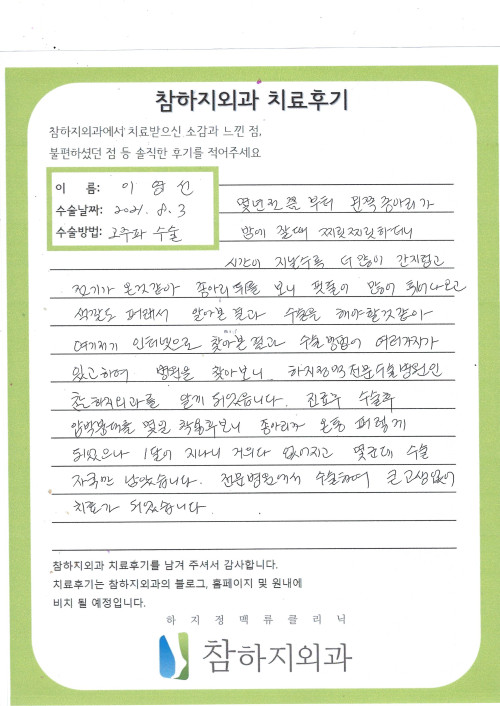 참하지외과 치료후기
참하지외과에서 치료받으신 소감과 느낀 점,
불편하셨던 점 등 솔직한 후기를 적어주세요
이 름: 이 영 선
수술날짜: 2021. 8. 3
수술방법: 고주파 수술
몇년전 쯤 부터 왼쪽 종아리가
밤에 잘때 찌릿찌릿하더니
시간이 지날수록 더 많이 간지럽고
전기가 온것같아 종아리 뒤를 보니 핏줄이 많이 튀어나오고
색깔도 퍼래서 알아본 결과 수술은 해야할것같아
여기저기 인터넷으로 찾아본 결과 수술방법이 여러가지가
있고하여 병원을 찾아보니 하지정맥전문수술병원인
참하지외과를 알게 되었습니다. 진료후 수술후
압박붕대를 몇일 착용후보니 종아리가 온통 퍼렇게
되있으나 1달이 지나니 거의다 없어지고 몇군데 수술
자국만 남았습니다. 전문병원에서 수술하여 큰고생없이
치료가 되었습니다.
참하지외과 치료후기를 남겨 주셔서 감사합니다.
치료후기는 참하지외과의 블로그, 홈페이지 및 원내에
비치 될 예정입니다.
하지정맥류클리닉
참하지외과